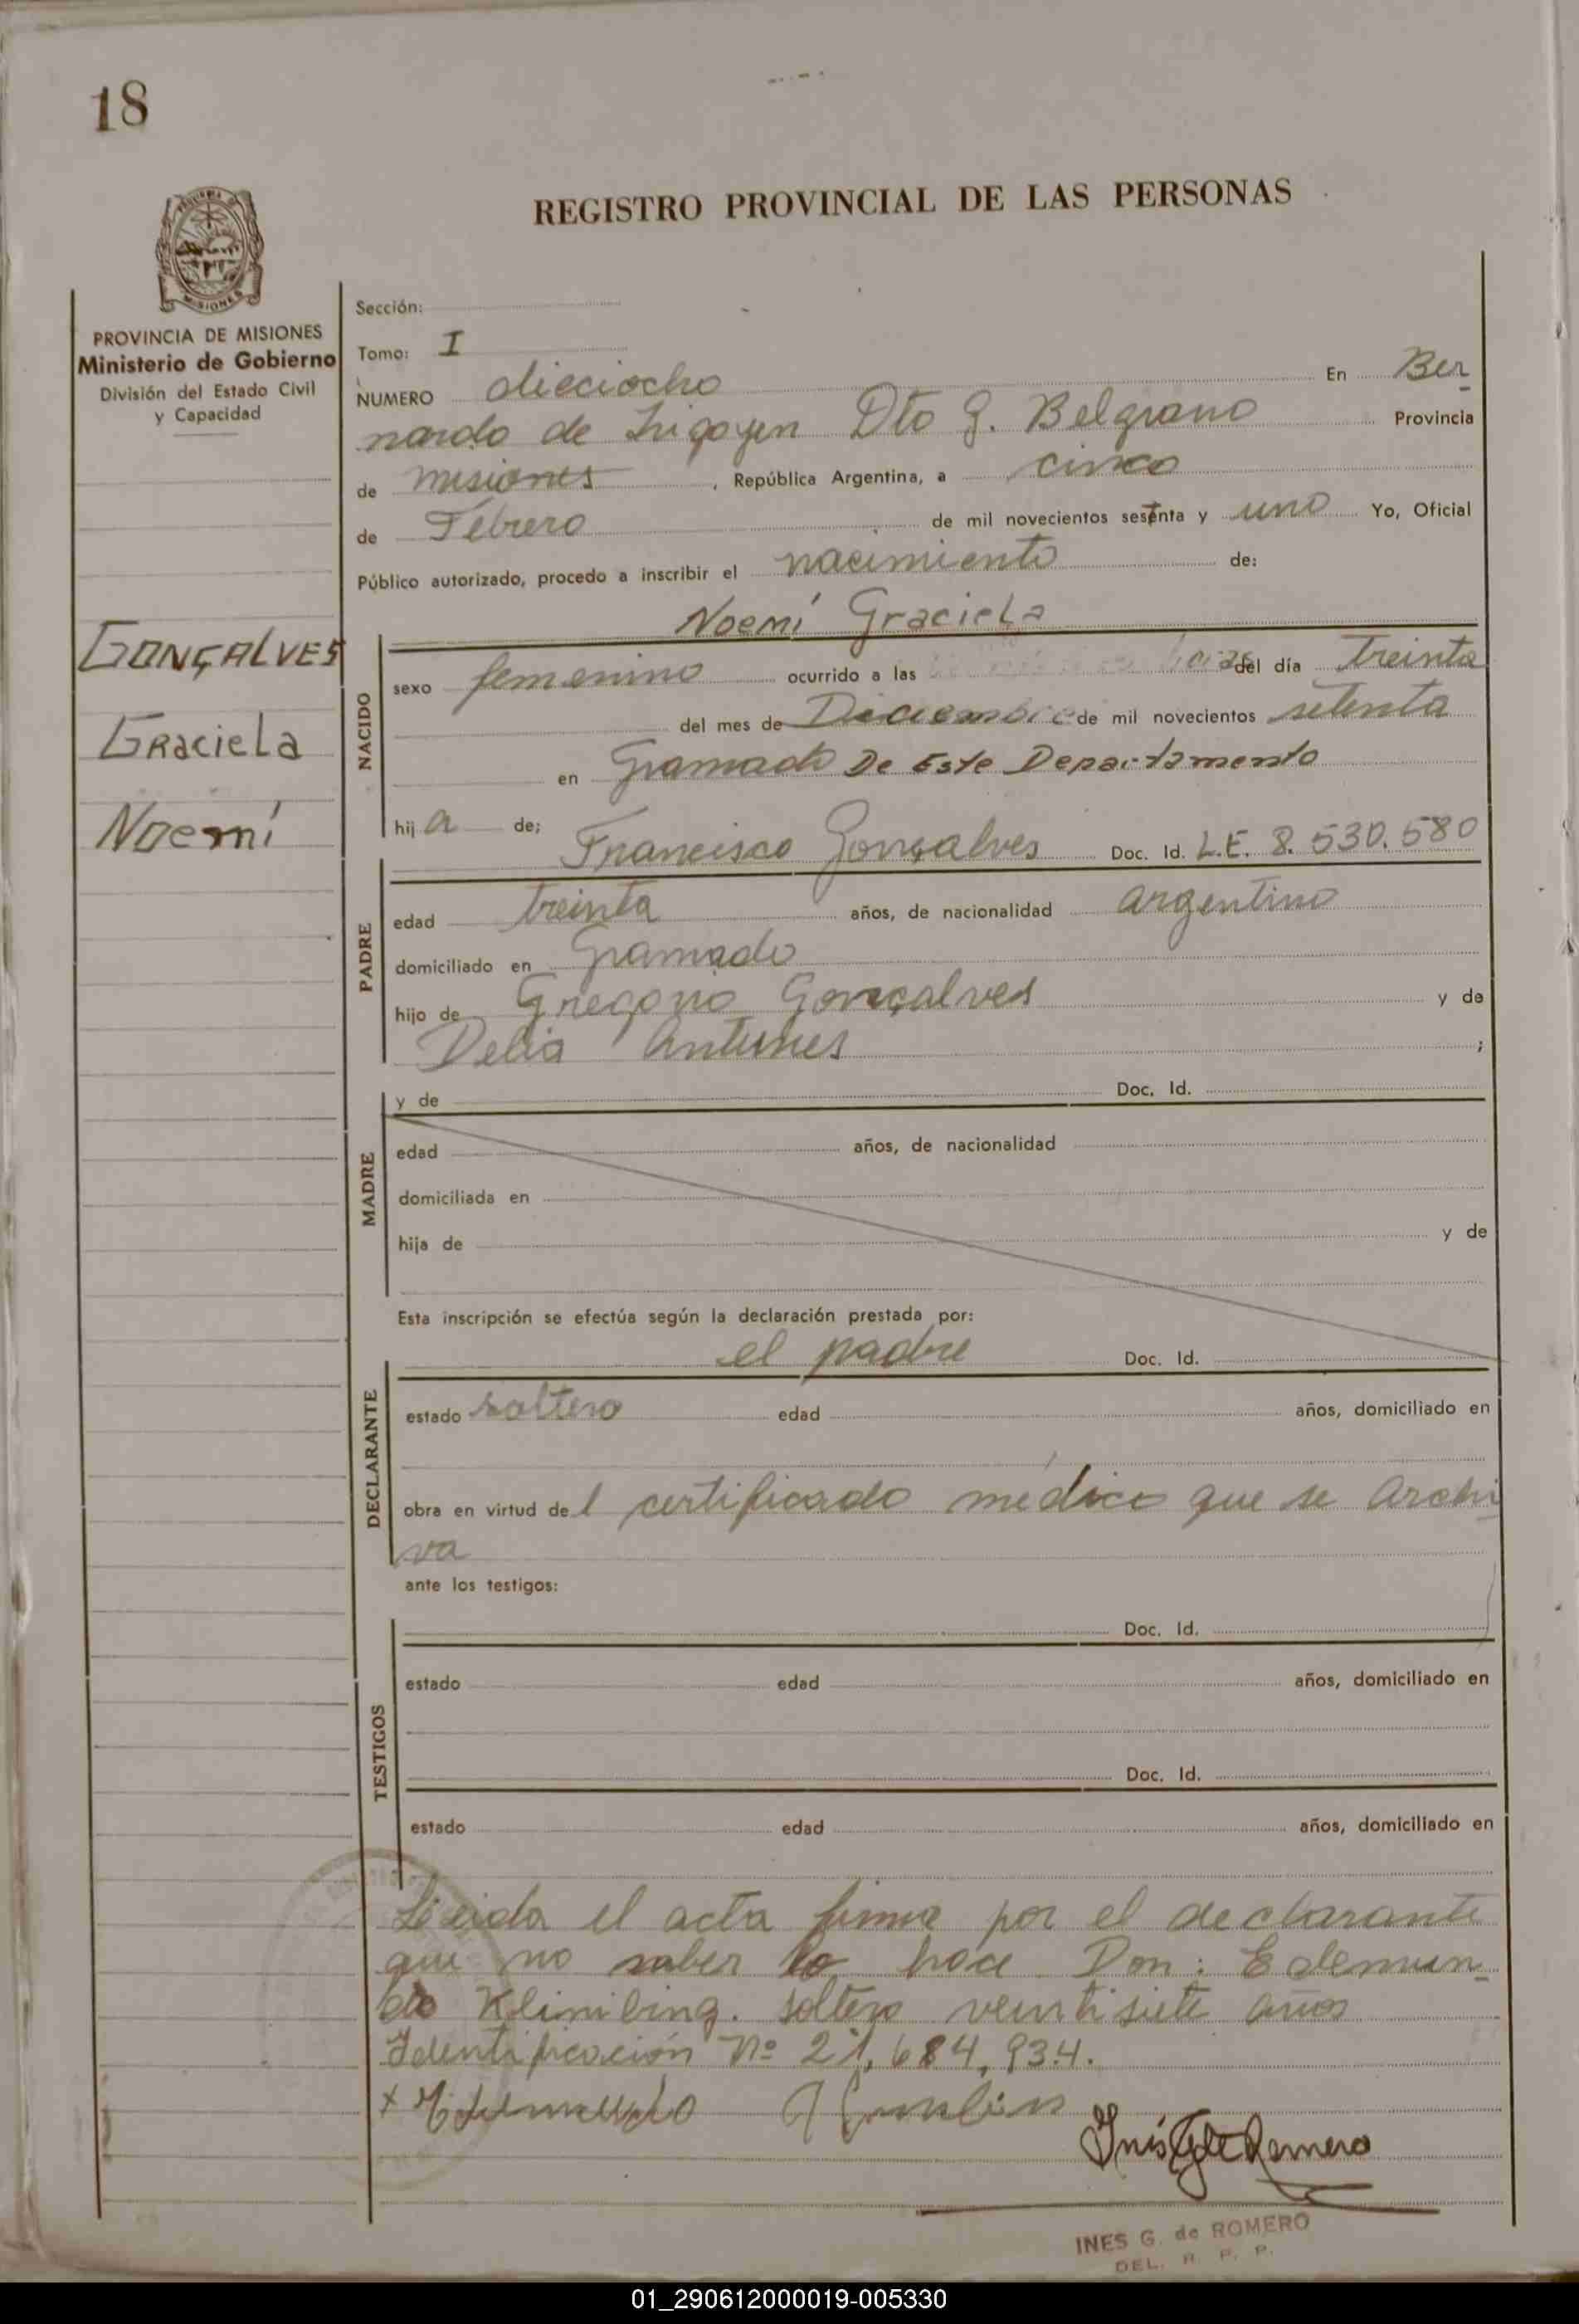 18
REGISTRO PROVINCIAL DE LAS PERSONAS
MISIONES
PROVINCIA DE MISIONES
Ministerio de Gobierno
División del Estado Civil
y Capacidad
GONÇALVES
Graciela
Noemí
Sección:
Tomo: I
NUMERO dieciocho En Ber
nardo de Irigoyen Dto G. Belgrano Provincia
de misiones, República Argentina, a cinco
de Febrero de mil novecientos setenta y uno Yo, Oficial
Público autorizado, procedo a inscribir el nacimiento de:
Noemí Graciela
NACIDO
sexo femenino ocurrido a las horas del día treinta
del mes de Diciembre de mil novecientos setenta
en Gramado De Este Departamento
hija de; Francisco Gonçalves Doc. Id. L.E. 8.530.580
PADRE
edad treinta años, de nacionalidad argentino
domiciliado en Gramado
hijo de Gregorio Gonçalves y de
Delia Antunes ;
MADRE
y de Doc. Id.
edad años, de nacionalidad
domiciliada en
hija de y de
Esta inscripción se efectúa según la declaración prestada por:
el padre Doc. Id.
DECLARANTE
estado soltero edad años, domiciliado en
obra en virtud del certificado médico que se Archi
va
ante los testigos:
TESTIGOS
Doc. Id.
estado edad años, domiciliado en
Doc. Id.
estado edad años, domiciliado en
Leida el acta firma por el declarante
que no saber lo hace Don: Edemun-
do soltero veintisiete años
Identificación Nº 21,684,934.
x
Inés G de Romero
INES G. de ROMERO
DEL. R. P. P.
01_290612000019-005330